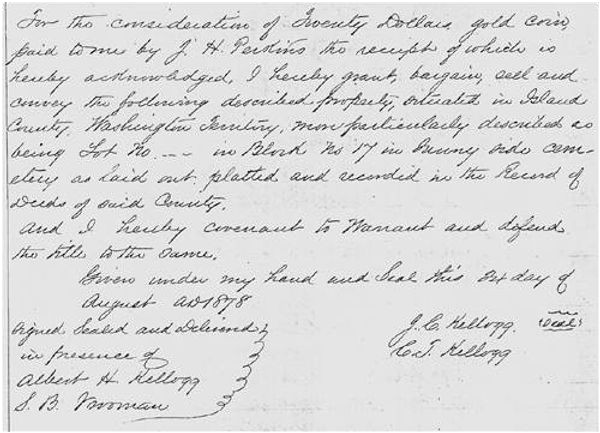 For the consideration of Twenty Dollars, gold coin,
paid to me by J. H. Perkins the receipt of which is
hereby acknowledged, I hereby grant, bargain, sell and
convey the following described property, situated in Island
County, Washington Territory, more particularly described as
being Lot No. --- in Block No 17 in Sunny side cem-
etery as laid out platted and recorded in the Record of
Deeds of said County.
And I hereby covenant to Warrant and defend
the title to the same.
Given under my hand and Seal this day of
August AD 1878
Signed Sealed and Delivered
in presence of
Albert H. Kellogg
S. B. Vrooman
J. C. Kellogg Seal
C. T. Kellogg